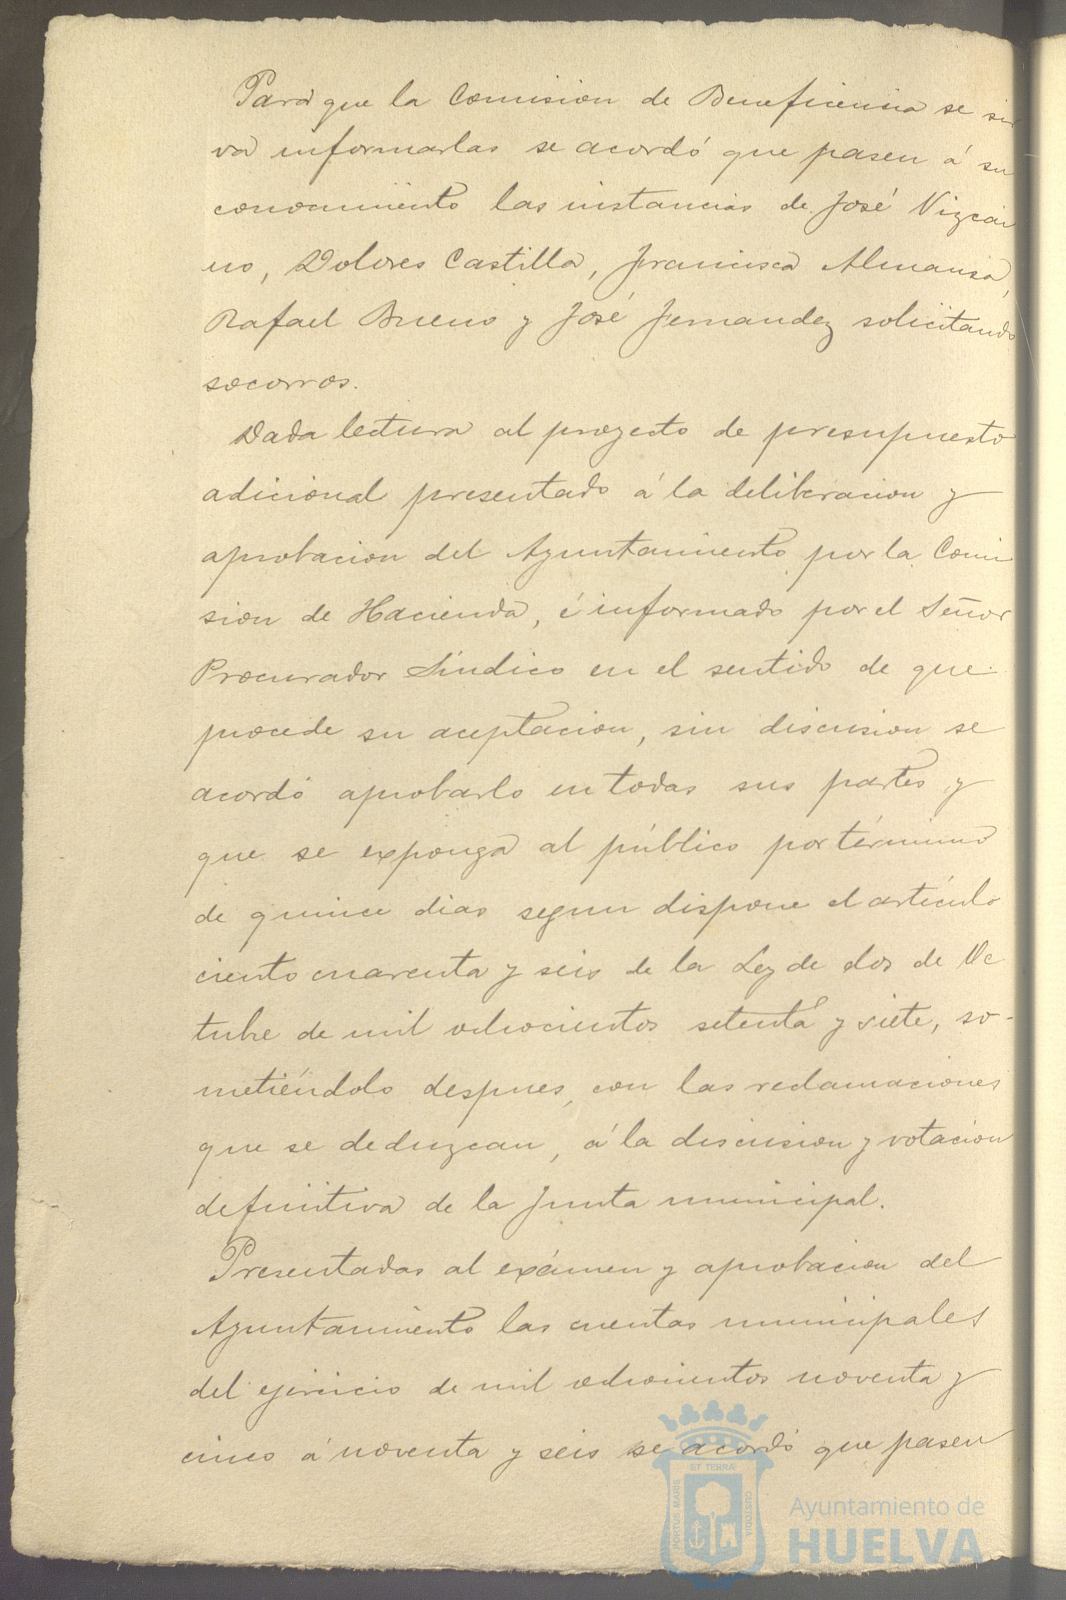 Para que la Comision de Beneficencia se sir
va informarlas se acordó que pasen á su
conocimiento las instancias de José Vizcai
no, Dolores Castilla, Francisca Almansa,
Rafael Bueno y José Fernandez solicitando
socorros.
Dada lectura al proyecto de presupuesto
adicional presentado á la deliberacion y
aprobacion del Ayuntamiento por la Comi
sion de Hacienda, é informado por el Señor
Procurador Síndico en el sentido de que
procede su aceptacion, sin discusion se
acordó aprobarlo en todas sus partes y
que se exponga al público por término
de quince dias segun dispone el artículo
ciento cuarenta y seis de la Ley de dos de Oc
tubre de mil ochocientos setenta y siete, so-
metiéndolo despues, con las reclamaciones
que se deduzcan, á la discusion y votacion
definitiva de la Junta municipal.
Presentadas al exámen y aprobacion del
Ayuntamiento las cuentas municipales
del ejercicio de mil ochocientos noventa y
cinco á noventa y seis se acordó que pasen
PORTUS MARIS ET TERRAE CUSTODIA
Ayuntamiento de
HUELVA